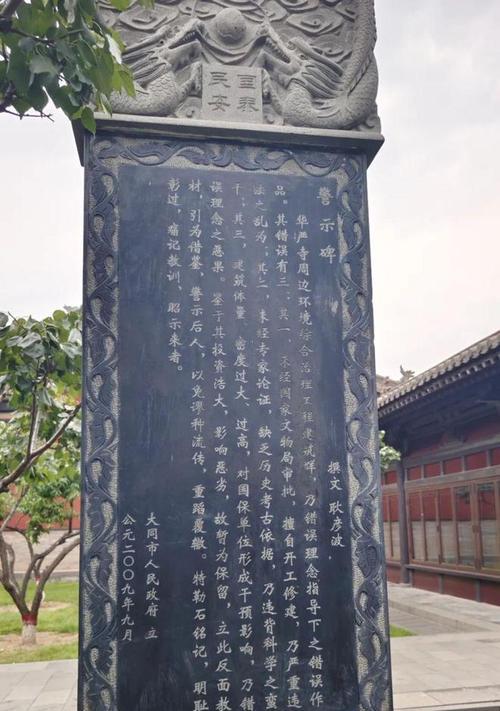 国泰
民安
警示碑 撰文 耿彦波
华严寺周边环境综合治理工程建筑群,乃错误理念指导下之错误作
品。其错误有三:其一、不经国家文物局审批,擅自开工修建,乃严重违
法之乱为;其二、未经专家论证,缺乏历史考古依据,乃违背科学之蛮
干;其三、建筑体量、密度过大、过高,对国保单位形成干预影响,乃错
误理念之恶果。鉴于其投资浩大,影响恶劣,故暂为保留,立此反面教
材,引为借鉴,警示后人,以免谬种流传,重蹈覆辙。特勒石铭记,明耻
彰过,痛记教训,昭示来者。
大同市人民政府 立
公元二〇〇九年九月